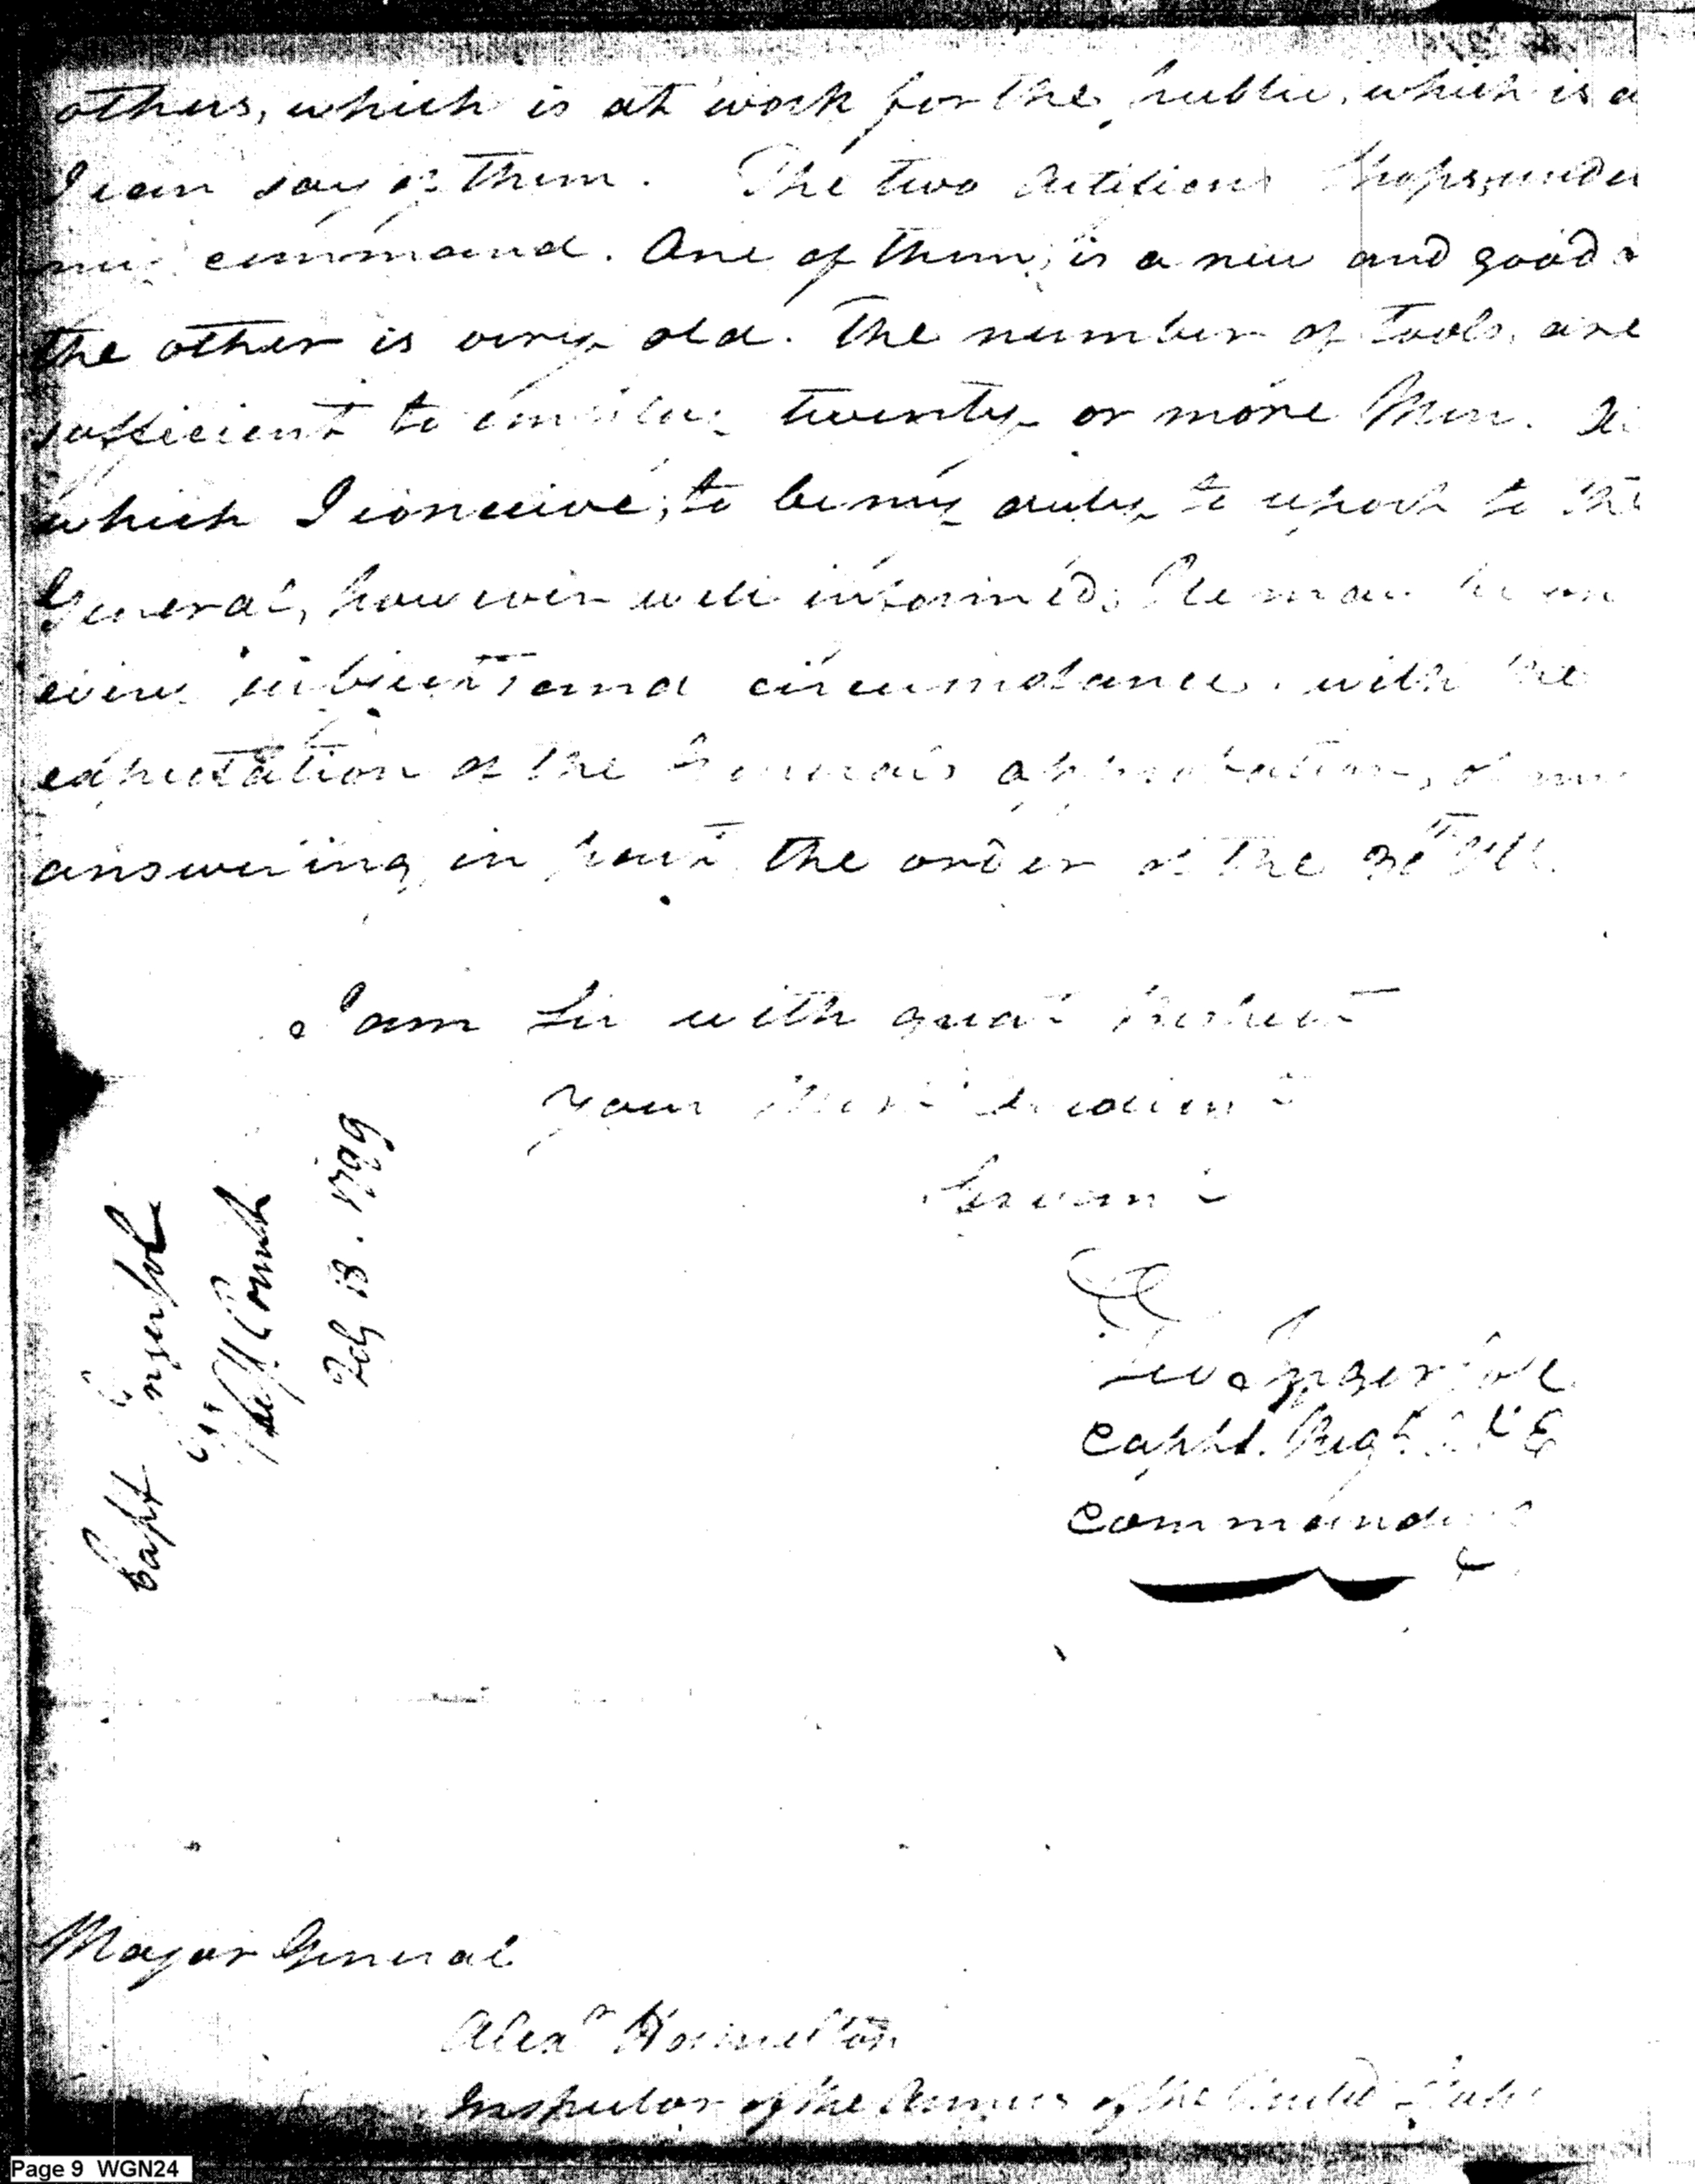 others, which is at work for the public, which is a
I can say of them. The two Artificers Shops, under
my command. One of them, is a new and good
the other is very old. The number of Tools, are
sufficient to employ twenty or more Men.
which I conceive, to be my duty to report to the
General, however well informed, He may be on
every subject and circumstance. with the
expectation of the Generals approbation, of my
answering, in part, the order of the 30th Ult.
I am Sir with great Respect
your Most Obedient
Servant
Geo Ingersoll
Captt. Regt. A & E
Commanding
Capt Ingersoll
July 13. 1799
Major General
Alexr Hamilton
Inspector of the Armies of the United States
Page 9 WGN24